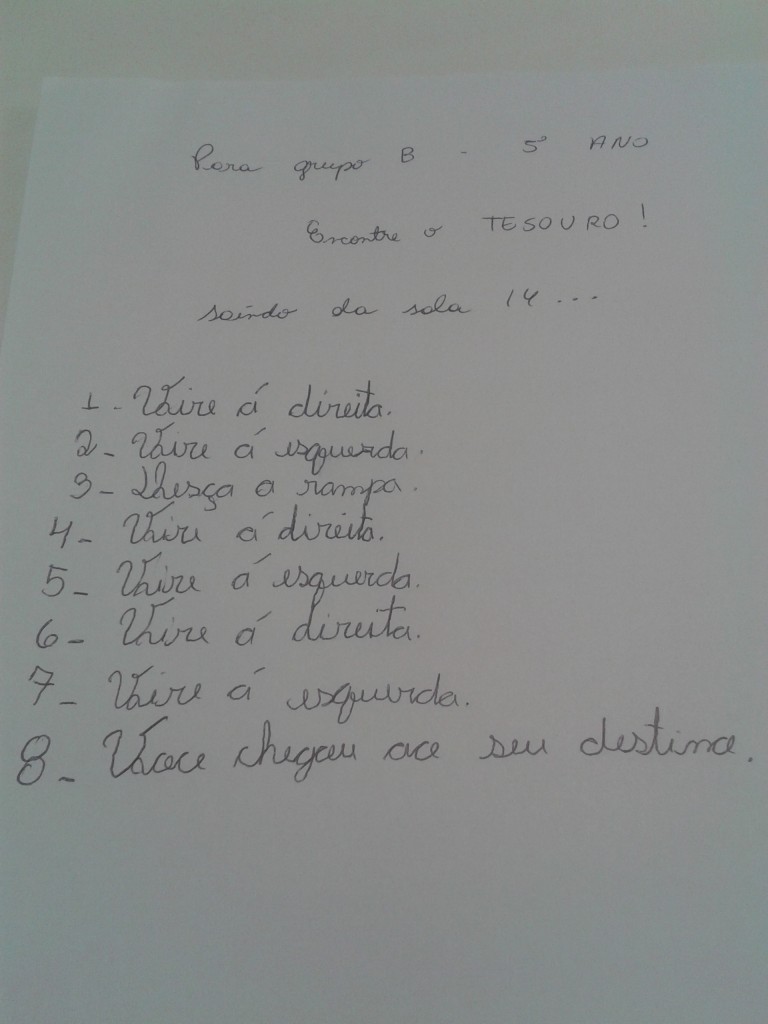 Para grupo B - 5º ANO
Encontre o TESOURO!
saindo da sala 14...
1 - Vire á direita.
2 - Vire á esquerda.
3 - Desça a rampa.
4 - Vire á direita.
5 - Vire á esquerda.
6 - Vire á direita.
7 - Vire á esquerda.
8 - Voce chegou ao seu destino.